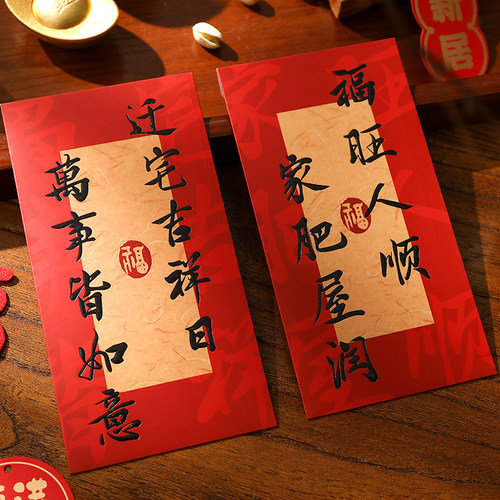 迁宅吉祥日
萬事皆如意
福
福旺人顺
家肥屋润
福
新居